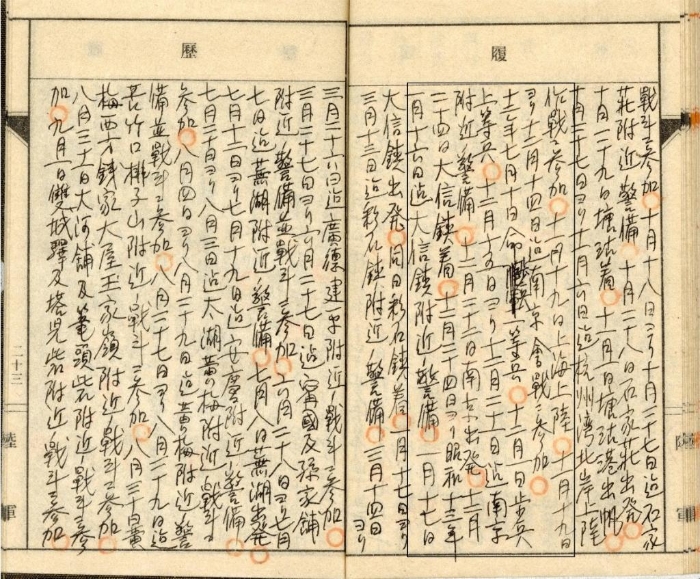 履歴
戦斗ニ参加 十月十八日ヨリ十月二十七日迄石家
荘附近ノ警備 十月二十八日石家荘出発
十月二十九日塘沽着 十一月一日塘沽港出帆
日ヨリ十一月六日迄杭州湾北岸上陸
作戦ニ参加 十一月十九日上海上陸 十一月十九日
ヨリ十二月十四日迄南京會戦ニ参加
十二年七月十日命一等兵 十二月一日歩兵
上等兵 十二月十五日ヨリ十二月 日迄南京
附近ノ警備 十二月二十三日南京出発 十二月
二十四日大信鎮着 十二月二十四日ヨリ昭和十三年
一月十六日迄大信鎮附近ノ警備 一月十七日
大信鎮出発 同日彩石鎮着 一月十七日ヨリ
三月十三日迄彩石鎮附近ノ警備 三月十四日ヨリ
三月二十六日迄廣徳建平附近ノ戦斗ニ参加
三月二十七日ヨリ六月二十七日迄寧國及孫家鋪
附近ノ警備並戦斗ニ参加 六月二十八日ヨリ七月
七日迄蕪湖附近ノ警備 七月八日蕪湖出発
七月十二日ヨリ七月十九日迄安慶附近ノ警備
七月二十日ヨリ八月三日迄太湖黄梅附近ノ戦斗ニ
参加 八月四日ヨリ八月二十九日迄黄梅附近ノ警
備並戦斗ニ参加 八月二十七日ヨリ八月二十九日迄
苦竹口排子山附近ノ戦斗ニ参加 八月三十日黄
梅西方錢家大屋王家嶺附近ノ戦斗ニ参加
八月三十一日大河舗及筆頭砦附近ノ戦斗ニ参
加 九月一日雙城驛及塔児砦附近ノ戦斗ニ参加
二十三
陸軍